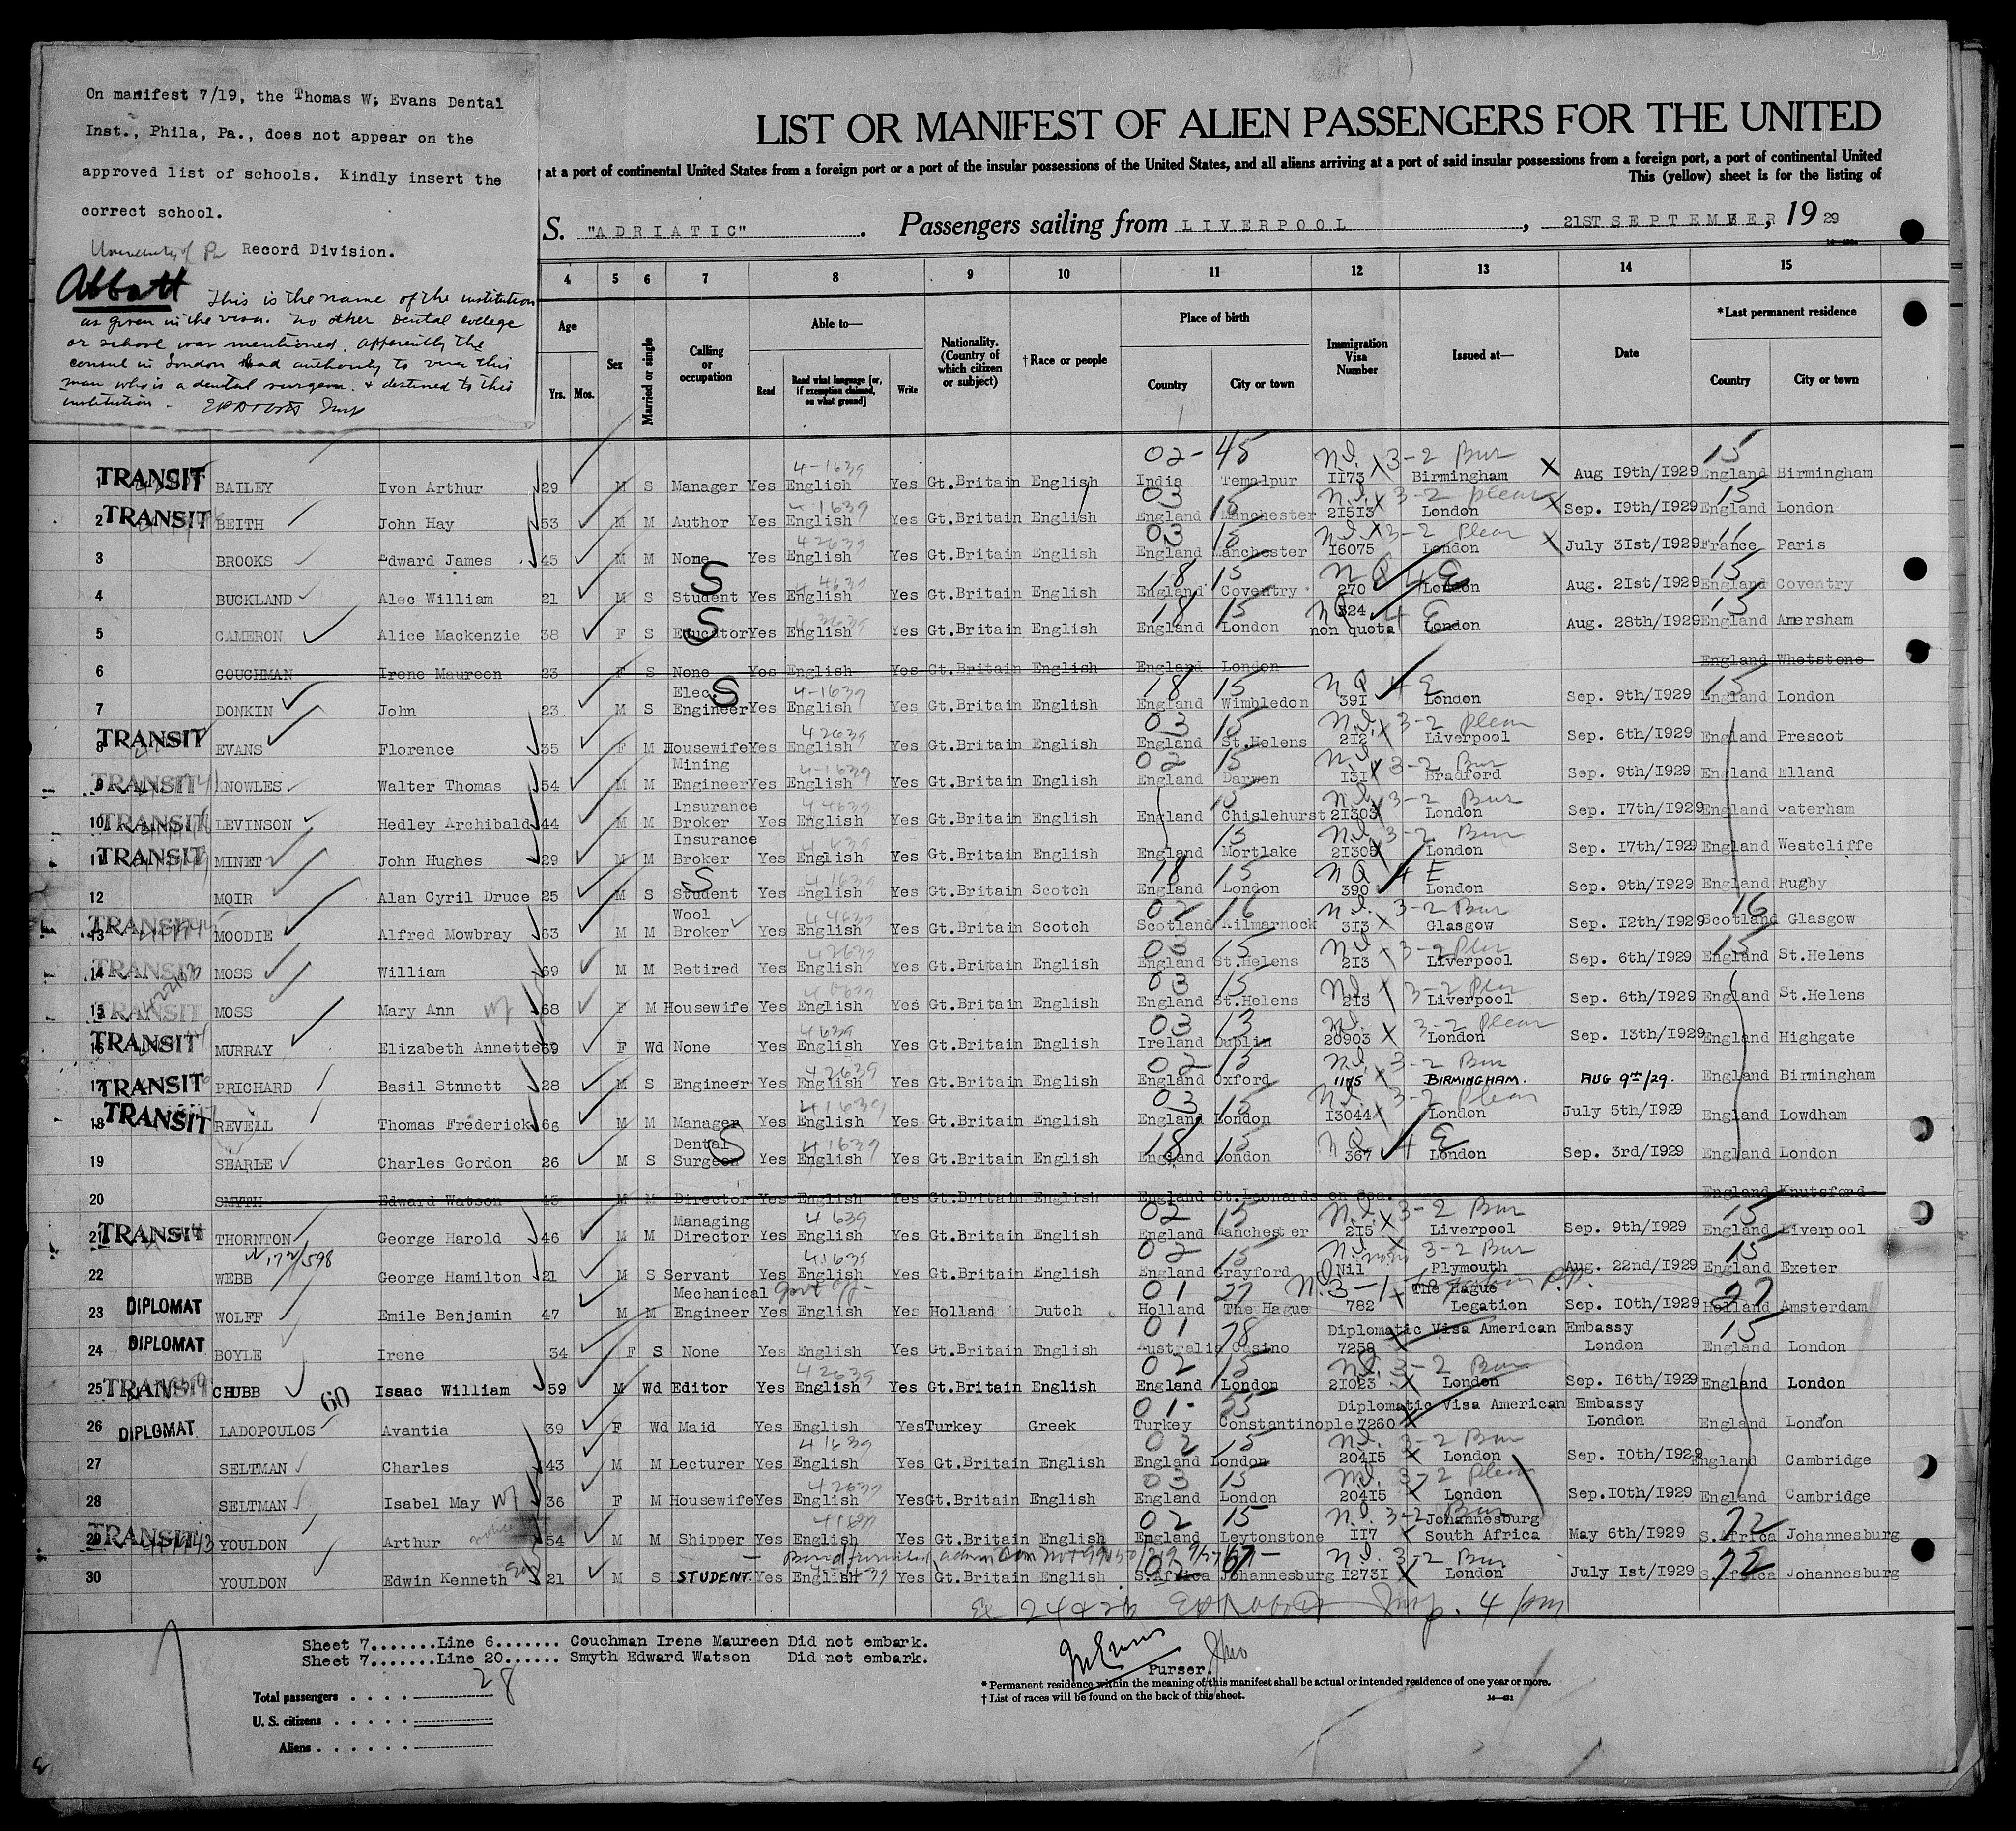 On manifest 7/19, the Thomas W. Evans Dental
Inst., Phila, Pa., does not appear on the
approved list of schools. Kindly insert the
correct school.
University of Pa Record Division.
Abbott
This is the name of the institution
as given in the visa. No other Dental college
or school was mentioned. Apparently the
consul in London had authority to visa this
man who is a dental surgeon & destined to this
institution -
LIST OR MANIFEST OF ALIEN PASSENGERS FOR THE UNITED
at a port of continental United States from a foreign port or a port of the insular possessions of the United States, and all aliens arriving at a port of said insular possessions from a foreign port, a port of continental United
This (yellow) sheet is for the listing of
S. "ADRIATIC". Passengers sailing from LIVERPOOL, 21ST SEPTEMBER, 1929
4 5 6 7 8 9 10 11 12 13 14 15
Age Sex Married or single Calling or occupation Able to— Nationality. (Country of which citizen or subject) †Race or people Place of birth Immigration Visa Number Issued at— Date *Last permanent residence
Yrs. Mos. Read Read what language [or, if exemption claimed, on what ground] Write Country City or town Country City or town
1 TRANSIT BAILEY Ivon Arthur 29 M S Manager Yes English Yes Gt.Britain English India Temalpur 1173 Birmingham Aug 19th/1929 England Birmingham
2 TRANSIT BEITH John Hay 53 M M Author Yes English Yes Gt.Britain English England Manchester 21513 London Sep. 19th/1929 England London
3 BROOKS Edward James 45 M M None Yes English Yes Gt.Britain English England Manchester 16075 London July 31st/1929 France Paris
4 BUCKLAND Alec William 21 M S Student Yes English Yes Gt.Britain English England Coventry 270 London Aug. 21st/1929 England Coventry
5 CAMERON Alice Mackenzie 38 F S Educator Yes English Yes Gt.Britain English England London 324 non quota London Aug. 28th/1929 England Amersham
6 COUCHMAN Irene Maureen 23 F S None Yes English Yes Gt.Britain English England London England Whetstone
7 DONKIN John 23 M S Elec. Engineer Yes English Yes Gt.Britain English England Wimbledon 391 London Sep. 9th/1929 England London
8 TRANSIT EVANS Florence 35 F M Housewife Yes English Yes Gt.Britain English England St.Helens 212 Liverpool Sep. 6th/1929 England Prescot
9 TRANSIT KNOWLES Walter Thomas 54 M M Mining Engineer Yes English Yes Gt.Britain English England Darwen 131 Bradford Sep. 9th/1929 England Elland
10 TRANSIT LEVINSON Hedley Archibald 44 M M Insurance Broker Yes English Yes Gt.Britain English England Chislehurst 21303 London Sep. 17th/1929 England Caterham
11 TRANSIT MINET John Hughes 29 M M Insurance Broker Yes English Yes Gt.Britain English England Mortlake 21305 London Sep. 17th/1929 England Westcliffe
12 MOIR Alan Cyril Druce 25 M S Student Yes English Yes Gt.Britain Scotch England London 390 London Sep. 9th/1929 England Rugby
13 TRANSIT MOODIE Alfred Mowbray 63 M M Wool Broker Yes English Yes Gt.Britain Scotch Scotland Kilmarnock 313 Glasgow Sep. 12th/1929 Scotland Glasgow
14 TRANSIT MOSS William 69 M M Retired Yes English Yes Gt.Britain English England St.Helens 213 Liverpool Sep. 6th/1929 England St.Helens
15 TRANSIT MOSS Mary Ann wf 68 F M Housewife Yes English Yes Gt.Britain English England St.Helens 213 Liverpool Sep. 6th/1929 England St.Helens
16 TRANSIT MURRAY Elizabeth Annette 69 F Wd None Yes English Yes Gt.Britain English Ireland Dublin 20903 London Sep. 13th/1929 England Highgate
17 TRANSIT PRICHARD Basil Stnnett 28 M S Engineer Yes English Yes Gt.Britain English England Oxford 1175 BIRMINGHAM. AUG 9TH/29. England Birmingham
18 TRANSIT REVELL Thomas Frederick 66 M M Manager Yes English Yes Gt.Britain English England London 13044 London July 5th/1929 England Lowdham
19 SEARLE Charles Gordon 26 M S Dental Surgeon Yes English Yes Gt.Britain English England London 367 London Sep. 3rd/1929 England London
20 SMYTH Edward Watson 45 M M Director Yes English Yes Gt.Britain English England St.Leonards on Sea. England Knutsford
21 TRANSIT THORNTON George Harold 46 M M Managing Director Yes English Yes Gt.Britain English England Manchester 215 Liverpool Sep. 9th/1929 England Liverpool
22 WEBB George Hamilton 21 M S Servant Yes English Yes Gt.Britain English England Crayford Nil Plymouth Aug. 22nd/1929 England Exeter
23 DIPLOMAT WOLFF Emile Benjamin 47 M M Mechanical Engineer Yes English Yes Holland Dutch Holland The Hague 782 The Hague Legation Sep. 10th/1929 Holland Amsterdam
24 DIPLOMAT BOYLE Irene 34 F S None Yes English Yes Gt.Britain English Australia Casino Diplomatic Visa American Embassy 7259 London England London
25 TRANSIT CHUBB Isaac William 59 M Wd Editor Yes English Yes Gt.Britain English England London 21023 London Sep. 16th/1929 England London
60
26 DIPLOMAT LADOPOULOS Avantia 39 F Wd Maid Yes English Yes Turkey Greek Turkey Constantinople Diplomatic Visa American Embassy 7260 London England London
27 SELTMAN Charles 43 M M Lecturer Yes English Yes Gt.Britain English England London 20415 London Sep. 10th/1929 England Cambridge
28 SELTMAN Isabel May wf 36 F M Housewife Yes English Yes Gt.Britain English England London 20415 London Sep.10th/1929 England Cambridge
29 TRANSIT YOULDON Arthur 54 M M Shipper Yes English Yes Gt.Britain English England Leytonstone 117 Johannesburg South Africa May 6th/1929 S.Africa Johannesburg
30 YOULDON Edwin Kenneth 21 M S STUDENT. Yes English Yes Gt.Britain English S.Africa Johannesburg 12731 London July 1st/1929 S.Africa Johannesburg
Sheet 7.......Line 6....... Couchman Irene Maureen Did not embark.
Sheet 7.......Line 20...... Smyth Edward Watson Did not embark.
28
Purser.
Total passengers
U. S. citizens
Aliens
* Permanent residence within the meaning of this manifest shall be actual or intended residence of one year or more.
† List of races will be found on the back of this sheet.